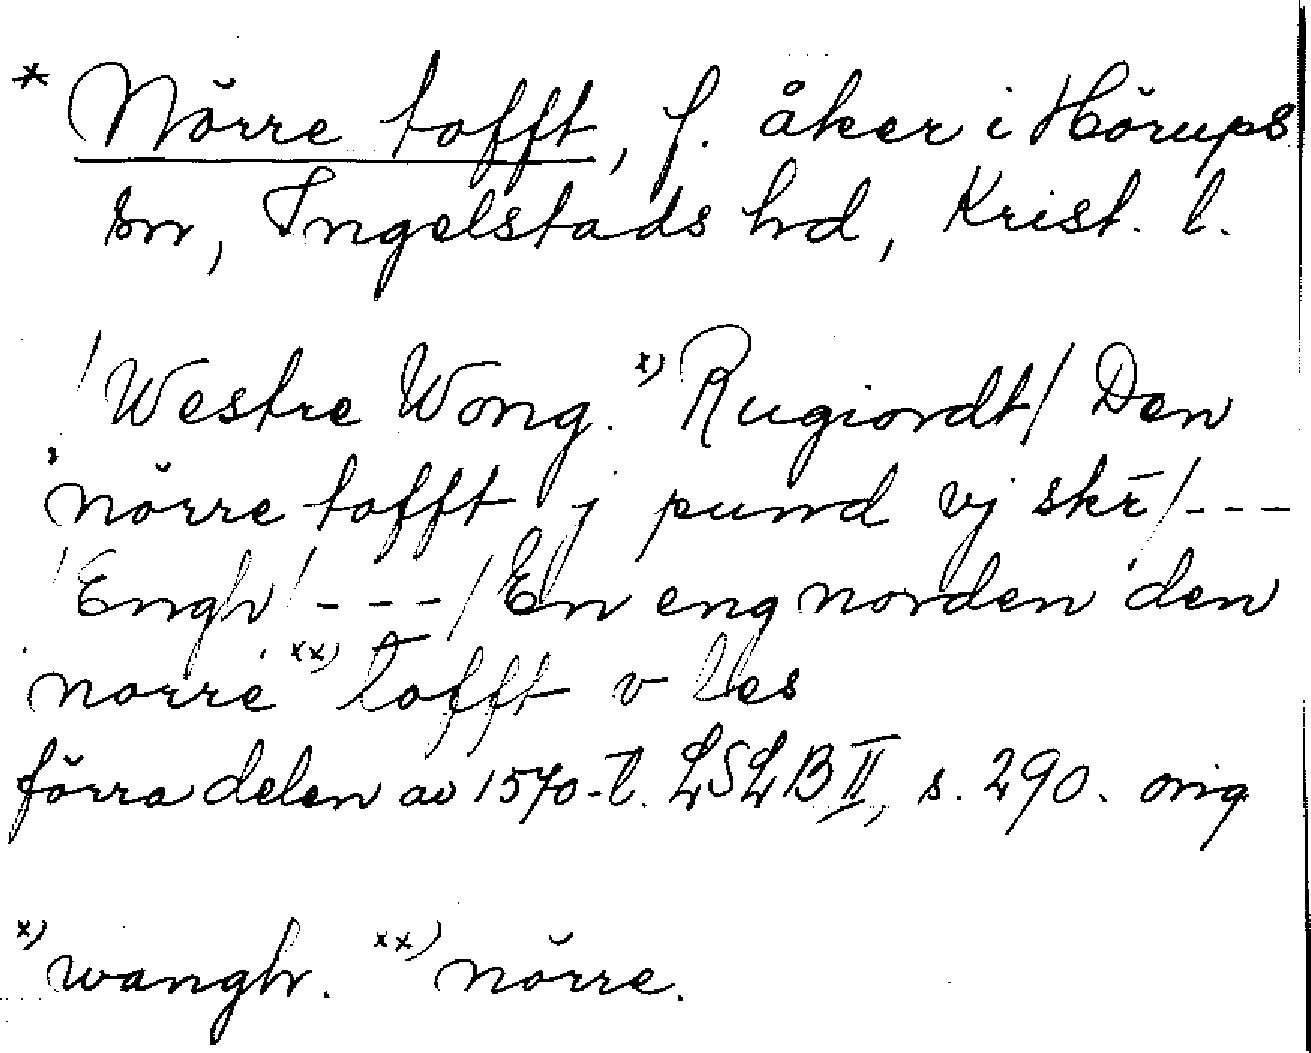 * Nörre tofft, f. åker i Hörups
sn, Ingelstads hd, Krist. l.
/Westre Wong. x) Rugiordt/ Den
nörre tofft j pund vj skr̄/---
/Engh/---/En eng norden den
norre xx) tofft v les
förra delen av 1570-t. LSLB II, s. 290. orig
x) wangh. xx) nörre.